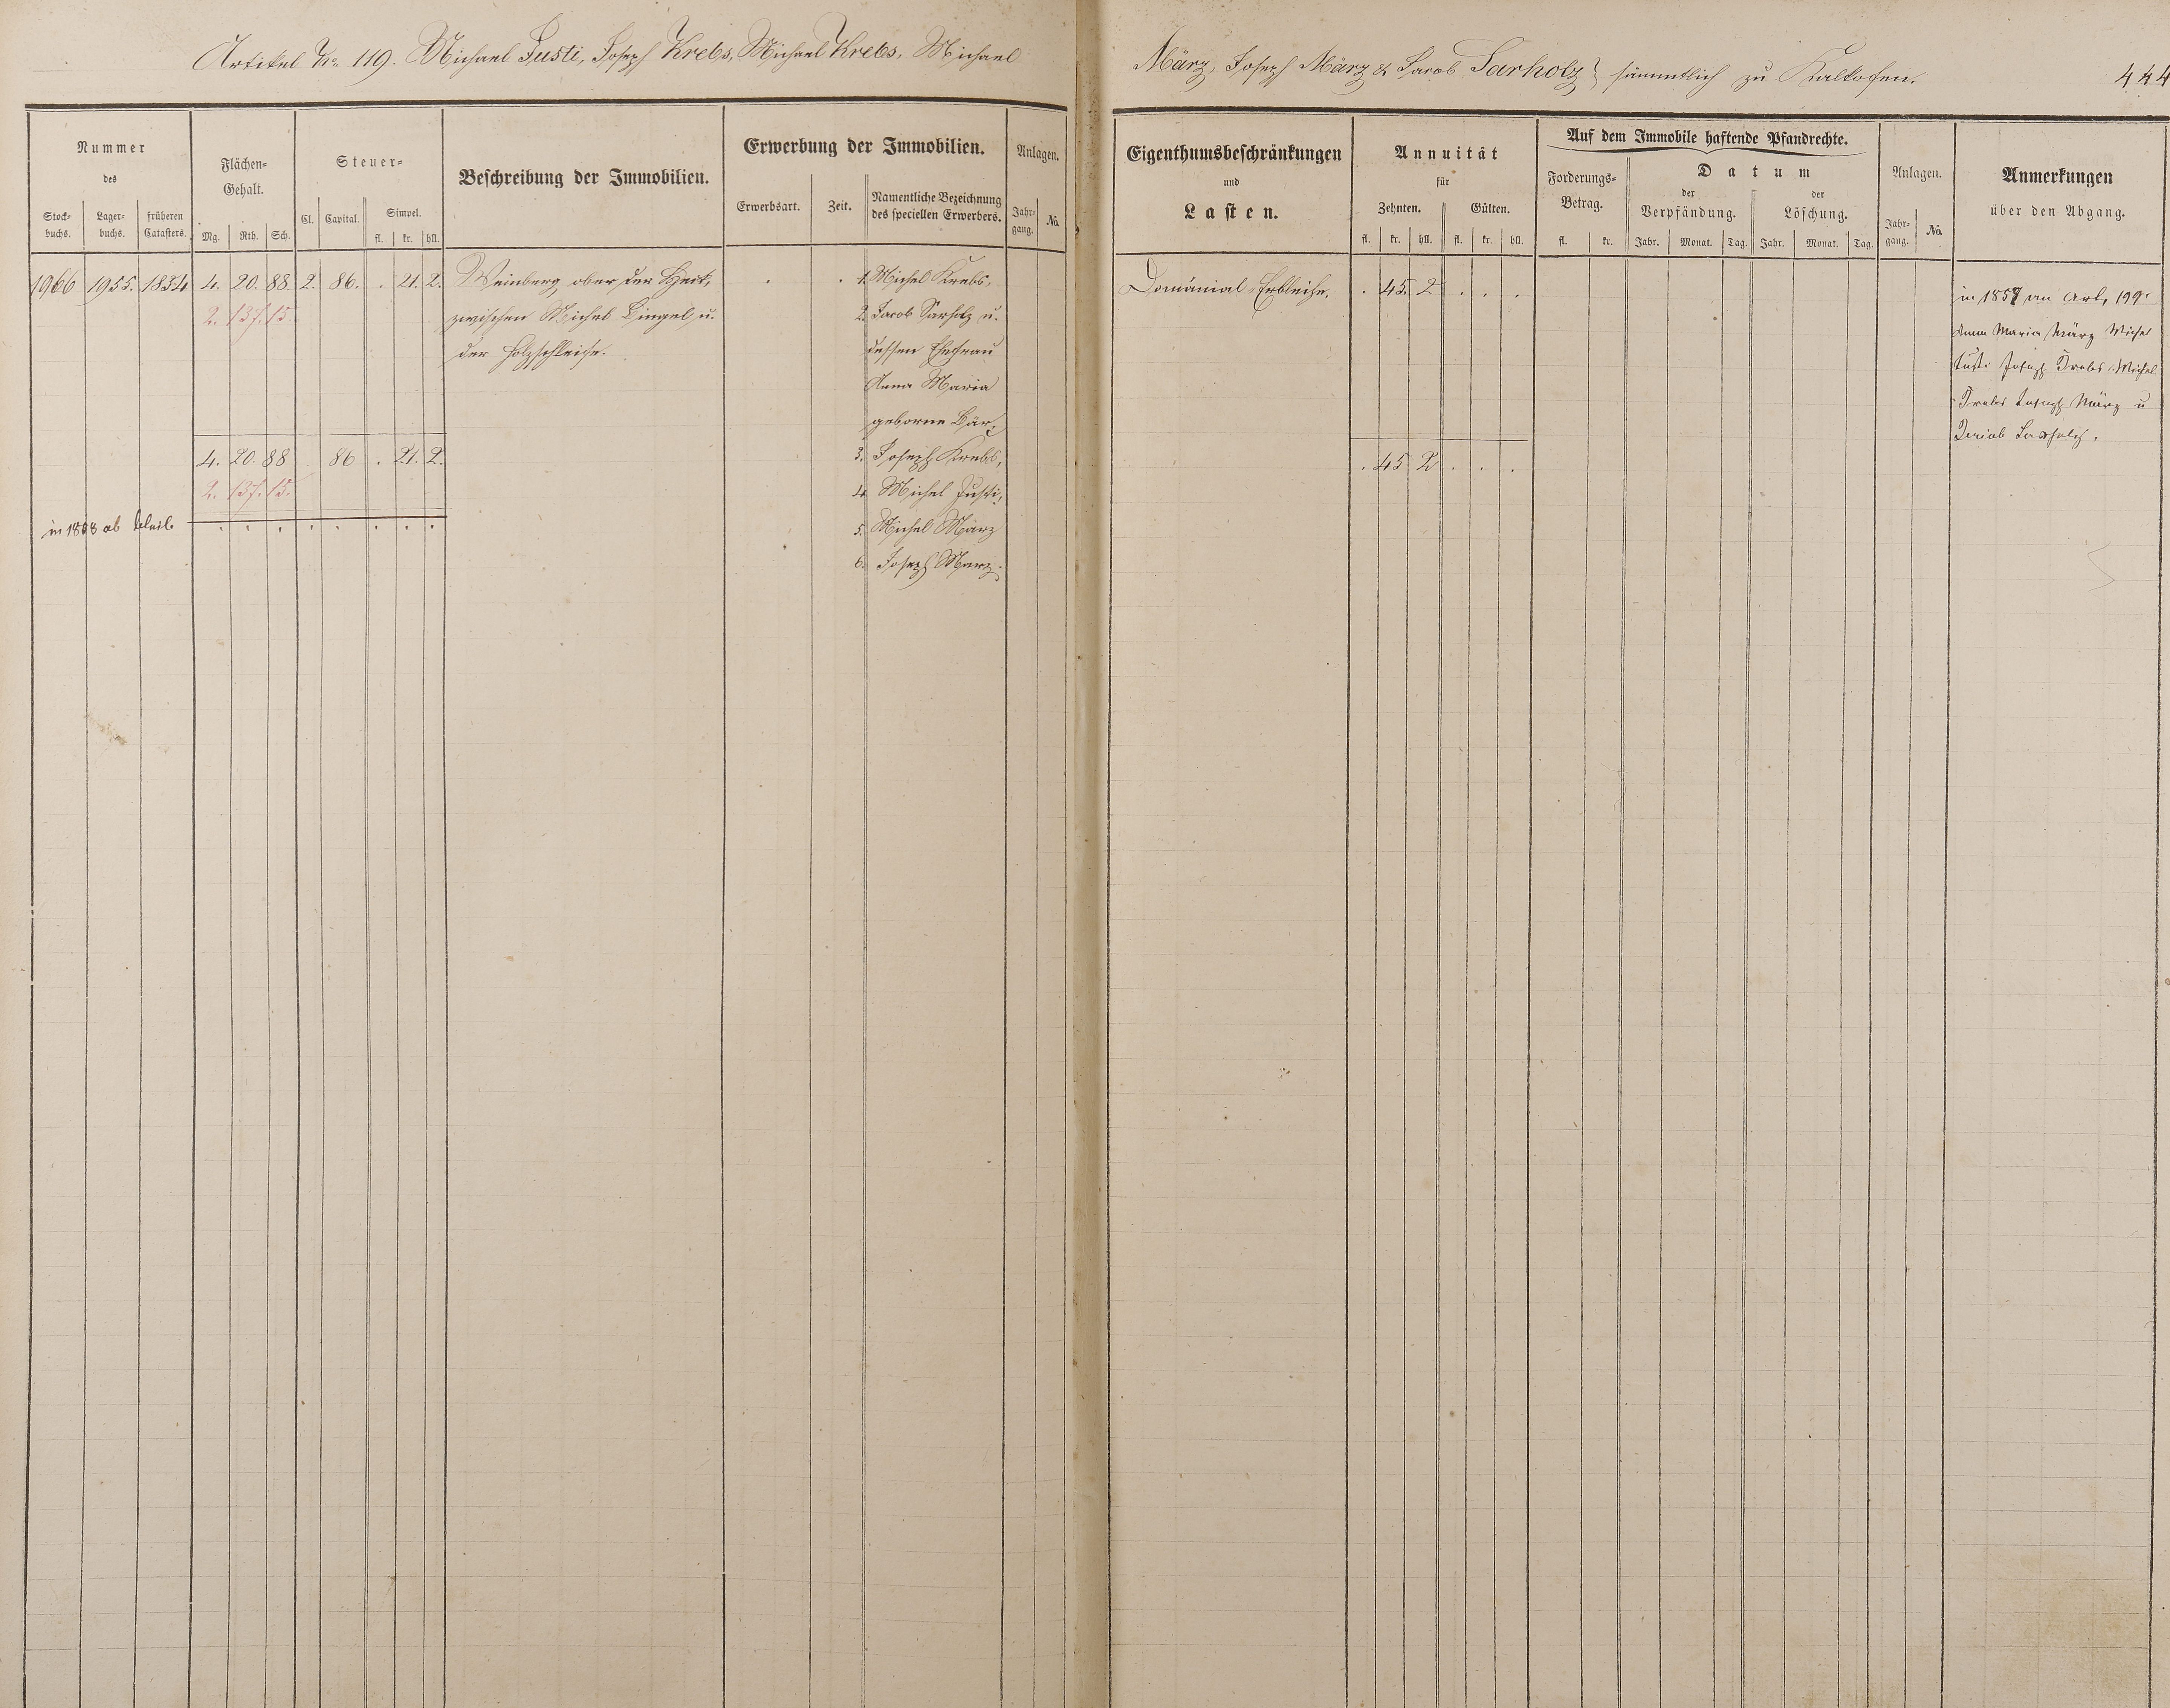 Artikel No 119. Michael Justi, Joseph Krebs, Michael Krebs, Michael
März, Joseph März & Jacob Sarholz } sämmtlich zu Kalkofen.
444
Nummer
des
Stock-
buchs.
Lager-
buchs.
früheren
Catasters.
Flächen-
Gehalt.
Mg. Rth. Sch.
Steuer-
Cl. Capital. Simpel.
fl. kr. hll.
Beschreibung der Immobilien.
Erwerbung der Immobilien.
Erwerbsart. Zeit.
Namentliche Bezeichnung
des speciellen Erwerbers.
Anlagen.
Jahr-
gang.
No.
Eigenthumsbeschränkungen
und
Lasten.
Annuität
für
Zehnten. Gülten.
fl. kr. hll. fl. kr. hll.
Auf dem Immobile haftende Pfandrechte.
Forderungs-
Betrag.
fl. kr.
Datum
der
Verpfändung.
Jahr. Monat. Tag.
der
Löschung.
Jahr. Monat. Tag.
Anlagen.
Jahr-
gang.
No.
Anmerkungen
über den Abgang.
1966 1955. 1834 4. 20. 88. 2. 86. . 21. 2.
2. 137. 15.
Weinberg ober der
zwischen Michel Bingel u.
der Holzschleife.
1. Michel Krebs,
2. Jacob Sarholz u.
dessen Ehefrau
Anna Maria
geborne Bär,
3. Joseph Krebs,
4. Michel Justi,
5. Michel März
6. Joseph März.
4. 20. 88 86 . 21. 2.
2. 137. 15.
in 1858 ab
. . . . . . . .
Domänial-Erbleihe.
. 45. 2 . . .
. 45 2 . . .
in 1857 an Art, 199
Anna Maria März Michel
Justi Joseph Krebs Michel
Krebs Joseph März u
Jacob Sarholz.